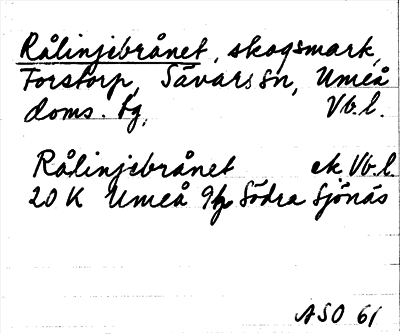 Rålinjebrånet, skogsmark,
Torstorp, Sävars sn, Umeå
doms. tg, Vb. l.
Rålinjebrånet ek. Vb. l.
20 K Umeå 9 Södra Sjönäs
ASO 61